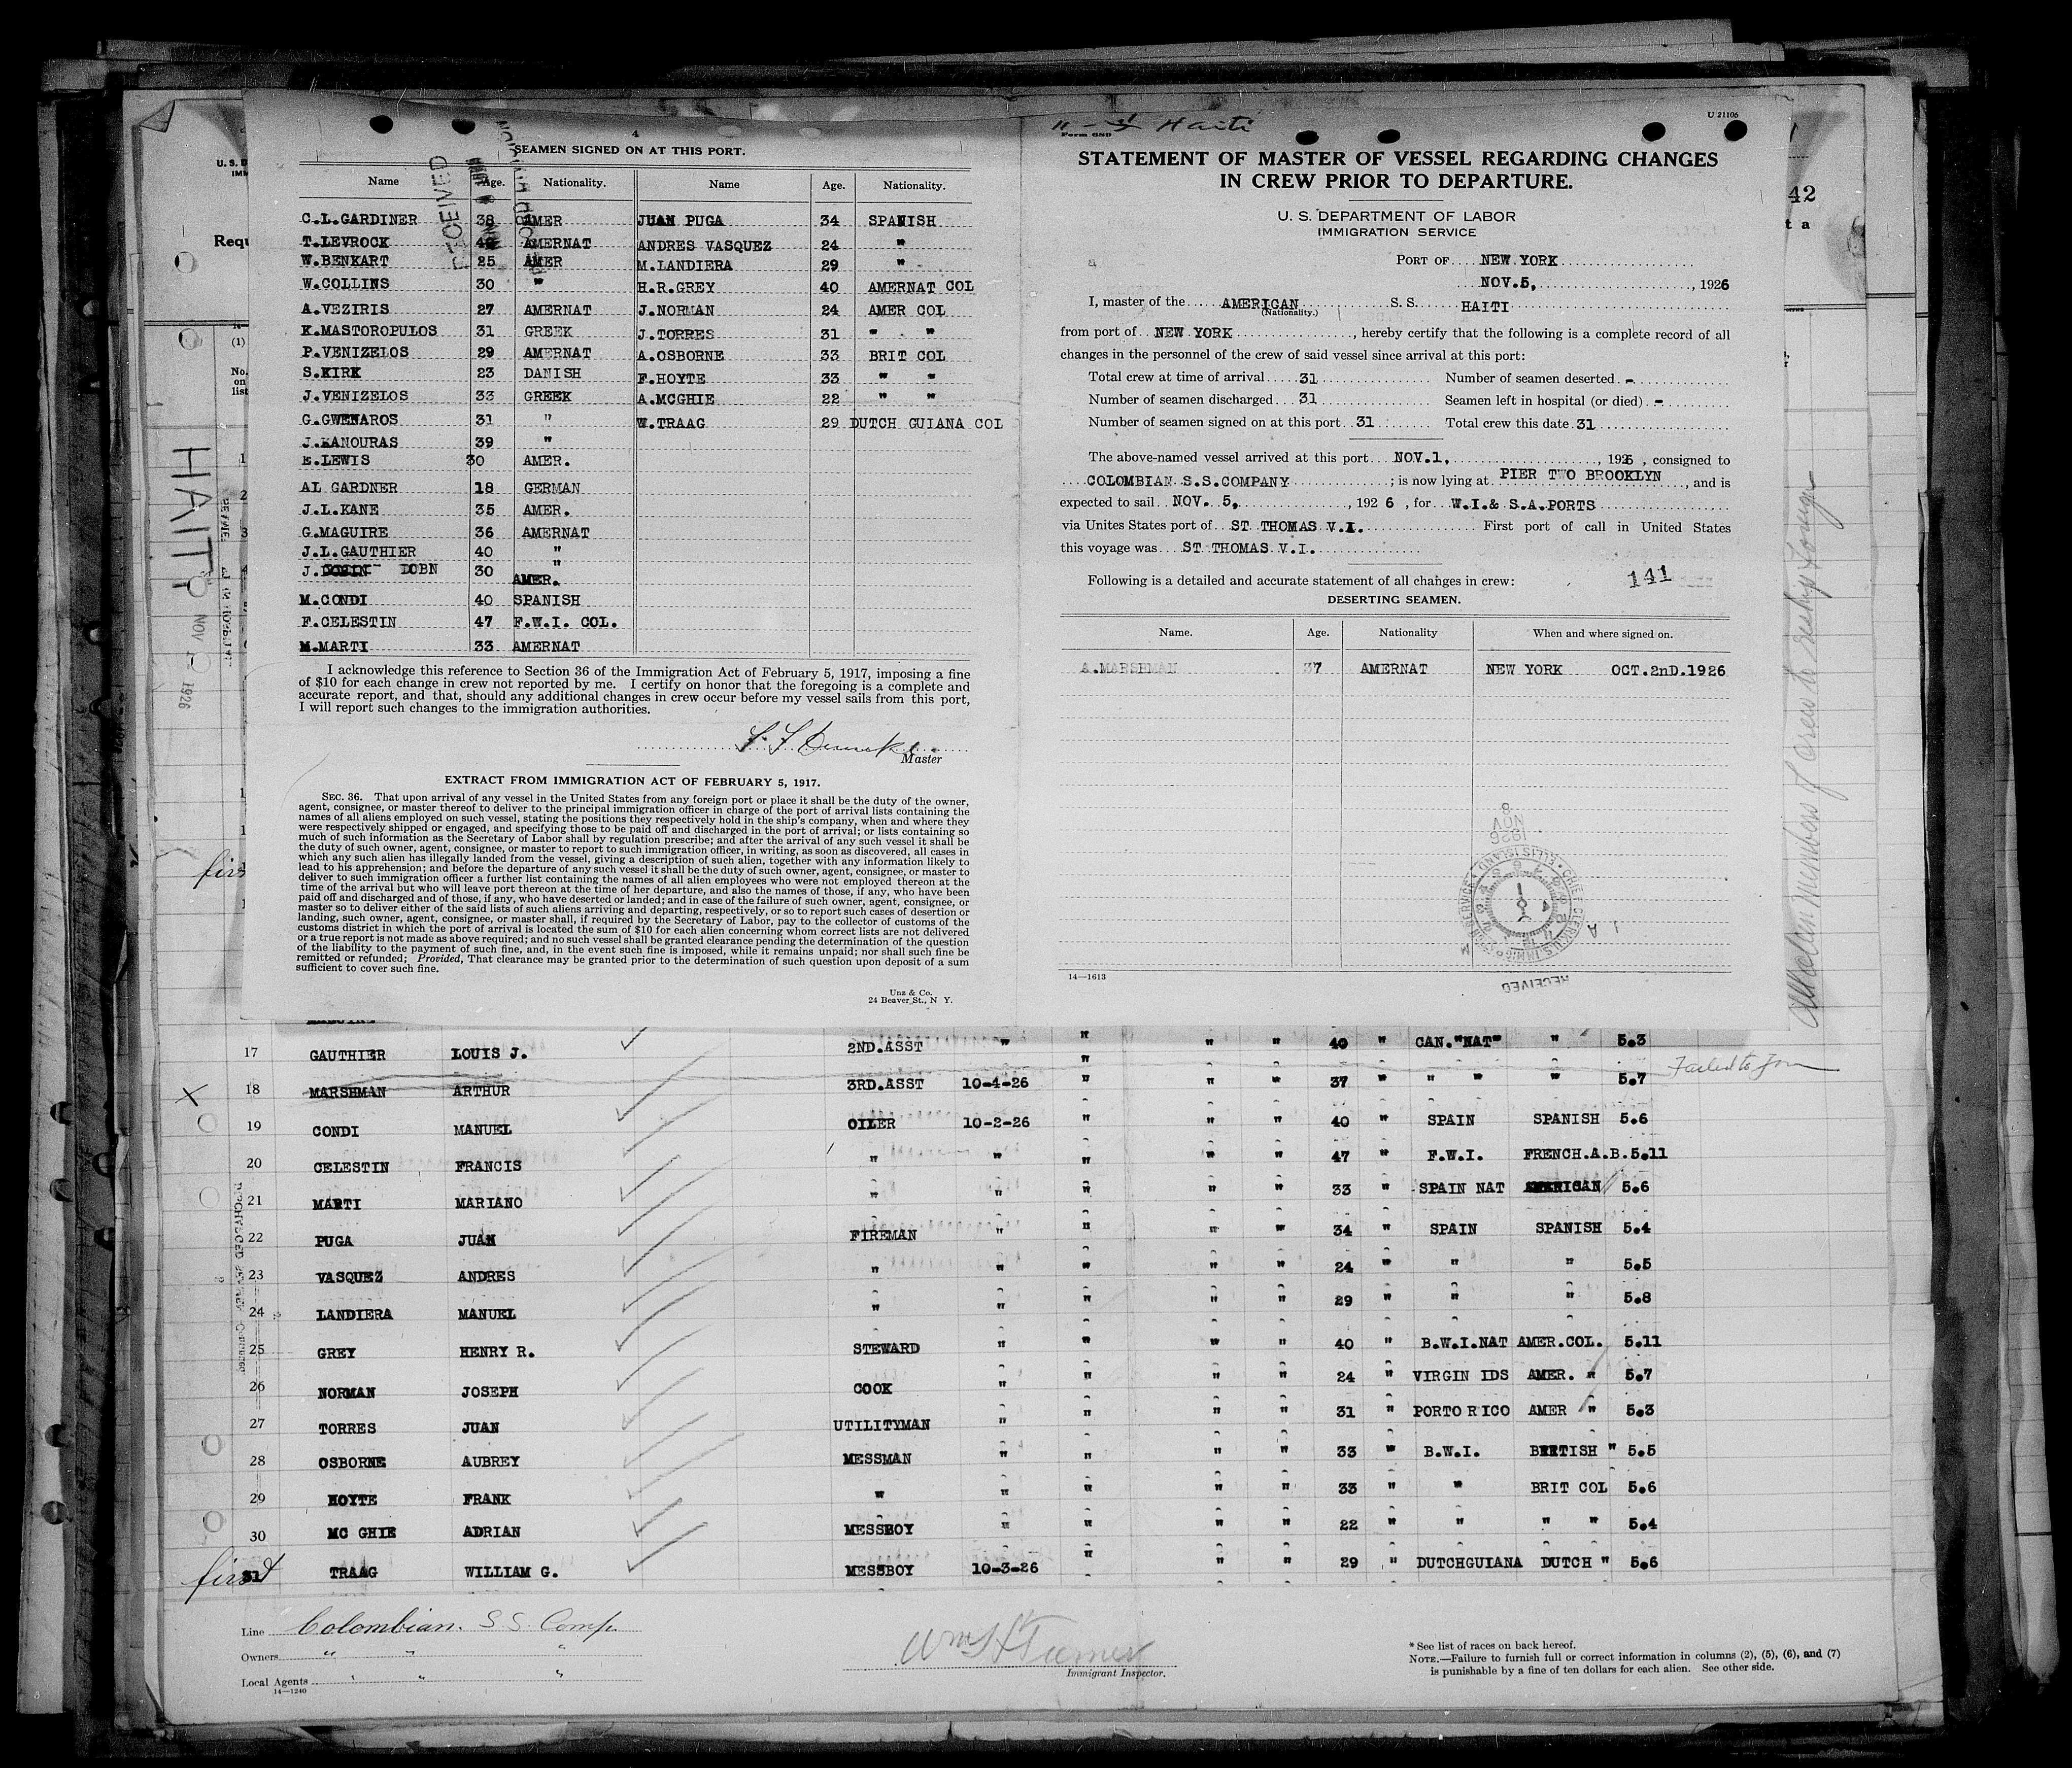 4
SEAMEN SIGNED ON AT THIS PORT.
Name Age. Nationality. Name Age. Nationality.
C.L.GARDINER 38 AMER JUAN PUGA 34 SPANISH
T.LEVROCK AMERNAT ANDRES VASQUEZ 24 "
W.BENKART 25 AMER M.LANDIERA 29 "
W.COLLINS 30 " H.R.GREY 40 AMERNAT COL
A.VEZIRIS 27 AMERNAT J.NORMAN 24 AMER COL
K.MASTOROPULOS 31 GREEK J.TORRES 31 " "
P.VENIZELOS 29 AMERNAT A.OSBORNE 33 BRIT COL
S.KIRK 23 DANISH F.HOYTE 33 " "
J.VENIZELOS 33 GREEK A.MCGHIE 22 " "
G.GWENAROS 31 " W.TRAAG 29 DUTCH GUIANA COL
J.KANOURAS 39 "
E.LEWIS 30 AMER.
AL GARDNER 18 GERMAN
J.L.KANE 35 AMER.
G.MAGUIRE 36 AMERNAT
J.L.GAUTHIER 40 "
J. DOBN 30 " AMER.
M.CONDI 40 SPANISH
F.CELESTIN 47 F.W.I. COL.
M.MARTI 33 AMERNAT
I acknowledge this reference to Section 36 of the Immigration Act of February 5, 1917, imposing a fine
of $10 for each change in crew not reported by me. I certify on honor that the foregoing is a complete and
accurate report, and that, should any additional changes in crew occur before my vessel sails from this port,
I will report such changes to the immigration authorities.
Master
EXTRACT FROM IMMIGRATION ACT OF FEBRUARY 5, 1917.
SEC. 36. That upon arrival of any vessel in the United States from any foreign port or place it shall be the duty of the owner,
agent, consignee, or master thereof to deliver to the principal immigration officer in charge of the port of arrival lists containing the
names of all aliens employed on such vessel, stating the positions they respectively hold in the ship's company, when and where they
were respectively shipped or engaged, and specifying those to be paid off and discharged in the port of arrival; or lists containing so
much of such information as the Secretary of Labor shall by regulation prescribe; and after the arrival of any such vessel it shall be
the duty of such owner, agent, consignee, or master to report to such immigration officer, in writing, as soon as discovered, all cases in
which any such alien has illegally landed from the vessel, giving a description of such alien, together with any information likely to
lead to his apprehension; and before the departure of any such vessel it shall be the duty of such owner, agent, consignee, or master to
deliver to such immigration officer a further list containing the names of all alien employees who were not employed thereon at the
time of the arrival but who will leave port thereon at the time of her departure, and also the names of those, if any, who have been
paid off and discharged and of those, if any, who have deserted or landed; and in case of the failure of such owner, agent, consignee, or
master so to deliver either of the said lists of such aliens arriving and departing, respectively, or so to report such cases of desertion or
landing, such owner, agent, consignee, or master shall, if required by the Secretary of Labor, pay to the collector of customs of the
customs district in which the port of arrival is located the sum of $10 for each alien concerning whom correct lists are not delivered
or a true report is not made as above required; and no such vessel shall be granted clearance pending the determination of the question
of the liability to the payment of such fine, and, in the event such fine is imposed, while it remains unpaid; nor shall such fine be
remitted or refunded; Provided, That clearance may be granted prior to the determination of such question upon deposit of a sum
sufficient to cover such fine.
Unz & Co.
24 Beaver St., N Y.
Haiti
U 21106
STATEMENT OF MASTER OF VESSEL REGARDING CHANGES
IN CREW PRIOR TO DEPARTURE.
U. S. DEPARTMENT OF LABOR
IMMIGRATION SERVICE
PORT OF NEW YORK
NOV.5, 1926
I, master of the AMERICAN S. S. HAITI
(Nationality.)
from port of NEW YORK, hereby certify that the following is a complete record of all
changes in the personnel of the crew of said vessel since arrival at this port:
Total crew at time of arrival 31 Number of seamen deserted -
Number of seamen discharged 31 Seamen left in hospital (or died) -
Number of seamen signed on at this port 31 Total crew this date 31
The above-named vessel arrived at this port NOV.1, 1926, consigned to
COLOMBIAN S.S.COMPANY ; is now lying at PIER TWO BROOKLYN, and is
expected to sail NOV. 5, 1926, for W.I.& S.A.PORTS
via Unites States port of ST THOMAS V.I. First port of call in United States
this voyage was ST THOMAS V.I.
Following is a detailed and accurate statement of all changes in crew: 141
DESERTING SEAMEN.
Name. Age. Nationality When and where signed on.
A.MARSHMAN 37 AMERNAT NEW YORK OCT.2nD.1926
14—1613
RECEIVED
HAITI
NOV 1- 1926
42
17 GAUTHIER LOUIS J. 2ND.ASST " " " " 40 " CAN."NAT" " 5.3
18 MARSHMAN ARTHUR 3RD.ASST 10-4-26 " " " 37 " " " " 5.7
19 CONDI MANUEL OILER 10-2-26 " " " 40 " SPAIN SPANISH 5.6
20 CELESTIN FRANCIS " " " " " 47 " F.W.I. FRENCH.A.B. 5.11
21 MARTI MARIANO " " " " " 33 " SPAIN NAT AMERICAN 5.6
22 PUGA JUAN FIREMAN " " " " 34 " SPAIN SPANISH 5.4
23 VASQUEZ ANDRES " " " " " 24 " " " 5.5
24 LANDIERA MANUEL " " " " " 29 " " " 5.8
25 GREY HENRY R. STEWARD " " " " 40 " B.W.I.NAT AMER.COL. 5.11
26 NORMAN JOSEPH COOK " " " " 24 " VIRGIN IDS AMER. " 5.7
27 TORRES JUAN UTILITYMAN " " " " 31 " PORTO RICO AMER " 5.3
28 OSBORNE AUBREY MESSMAN " " " " 33 " B.W.I. BRITISH " 5.5
29 HOYTE FRANK " " " " " 33 " " BRIT COL 5.6
30 MC GHIE ADRIAN MESSBOY " " " " 22 " " " " 5.4
31 TRAAG WILLIAM G. MESSBOY 10-3-26 " " " 29 " DUTCHGUIANA DUTCH " 5.6
first
Line Colombian. S S. Comp.
Owners " "
Local Agents " " "
14—1240
Immigrant Inspector.
* See list of races on back hereof.
NOTE.—Failure to furnish full or correct information in columns (2), (5), (6), and (7)
is punishable by a fine of ten dollars for each alien. See other side.